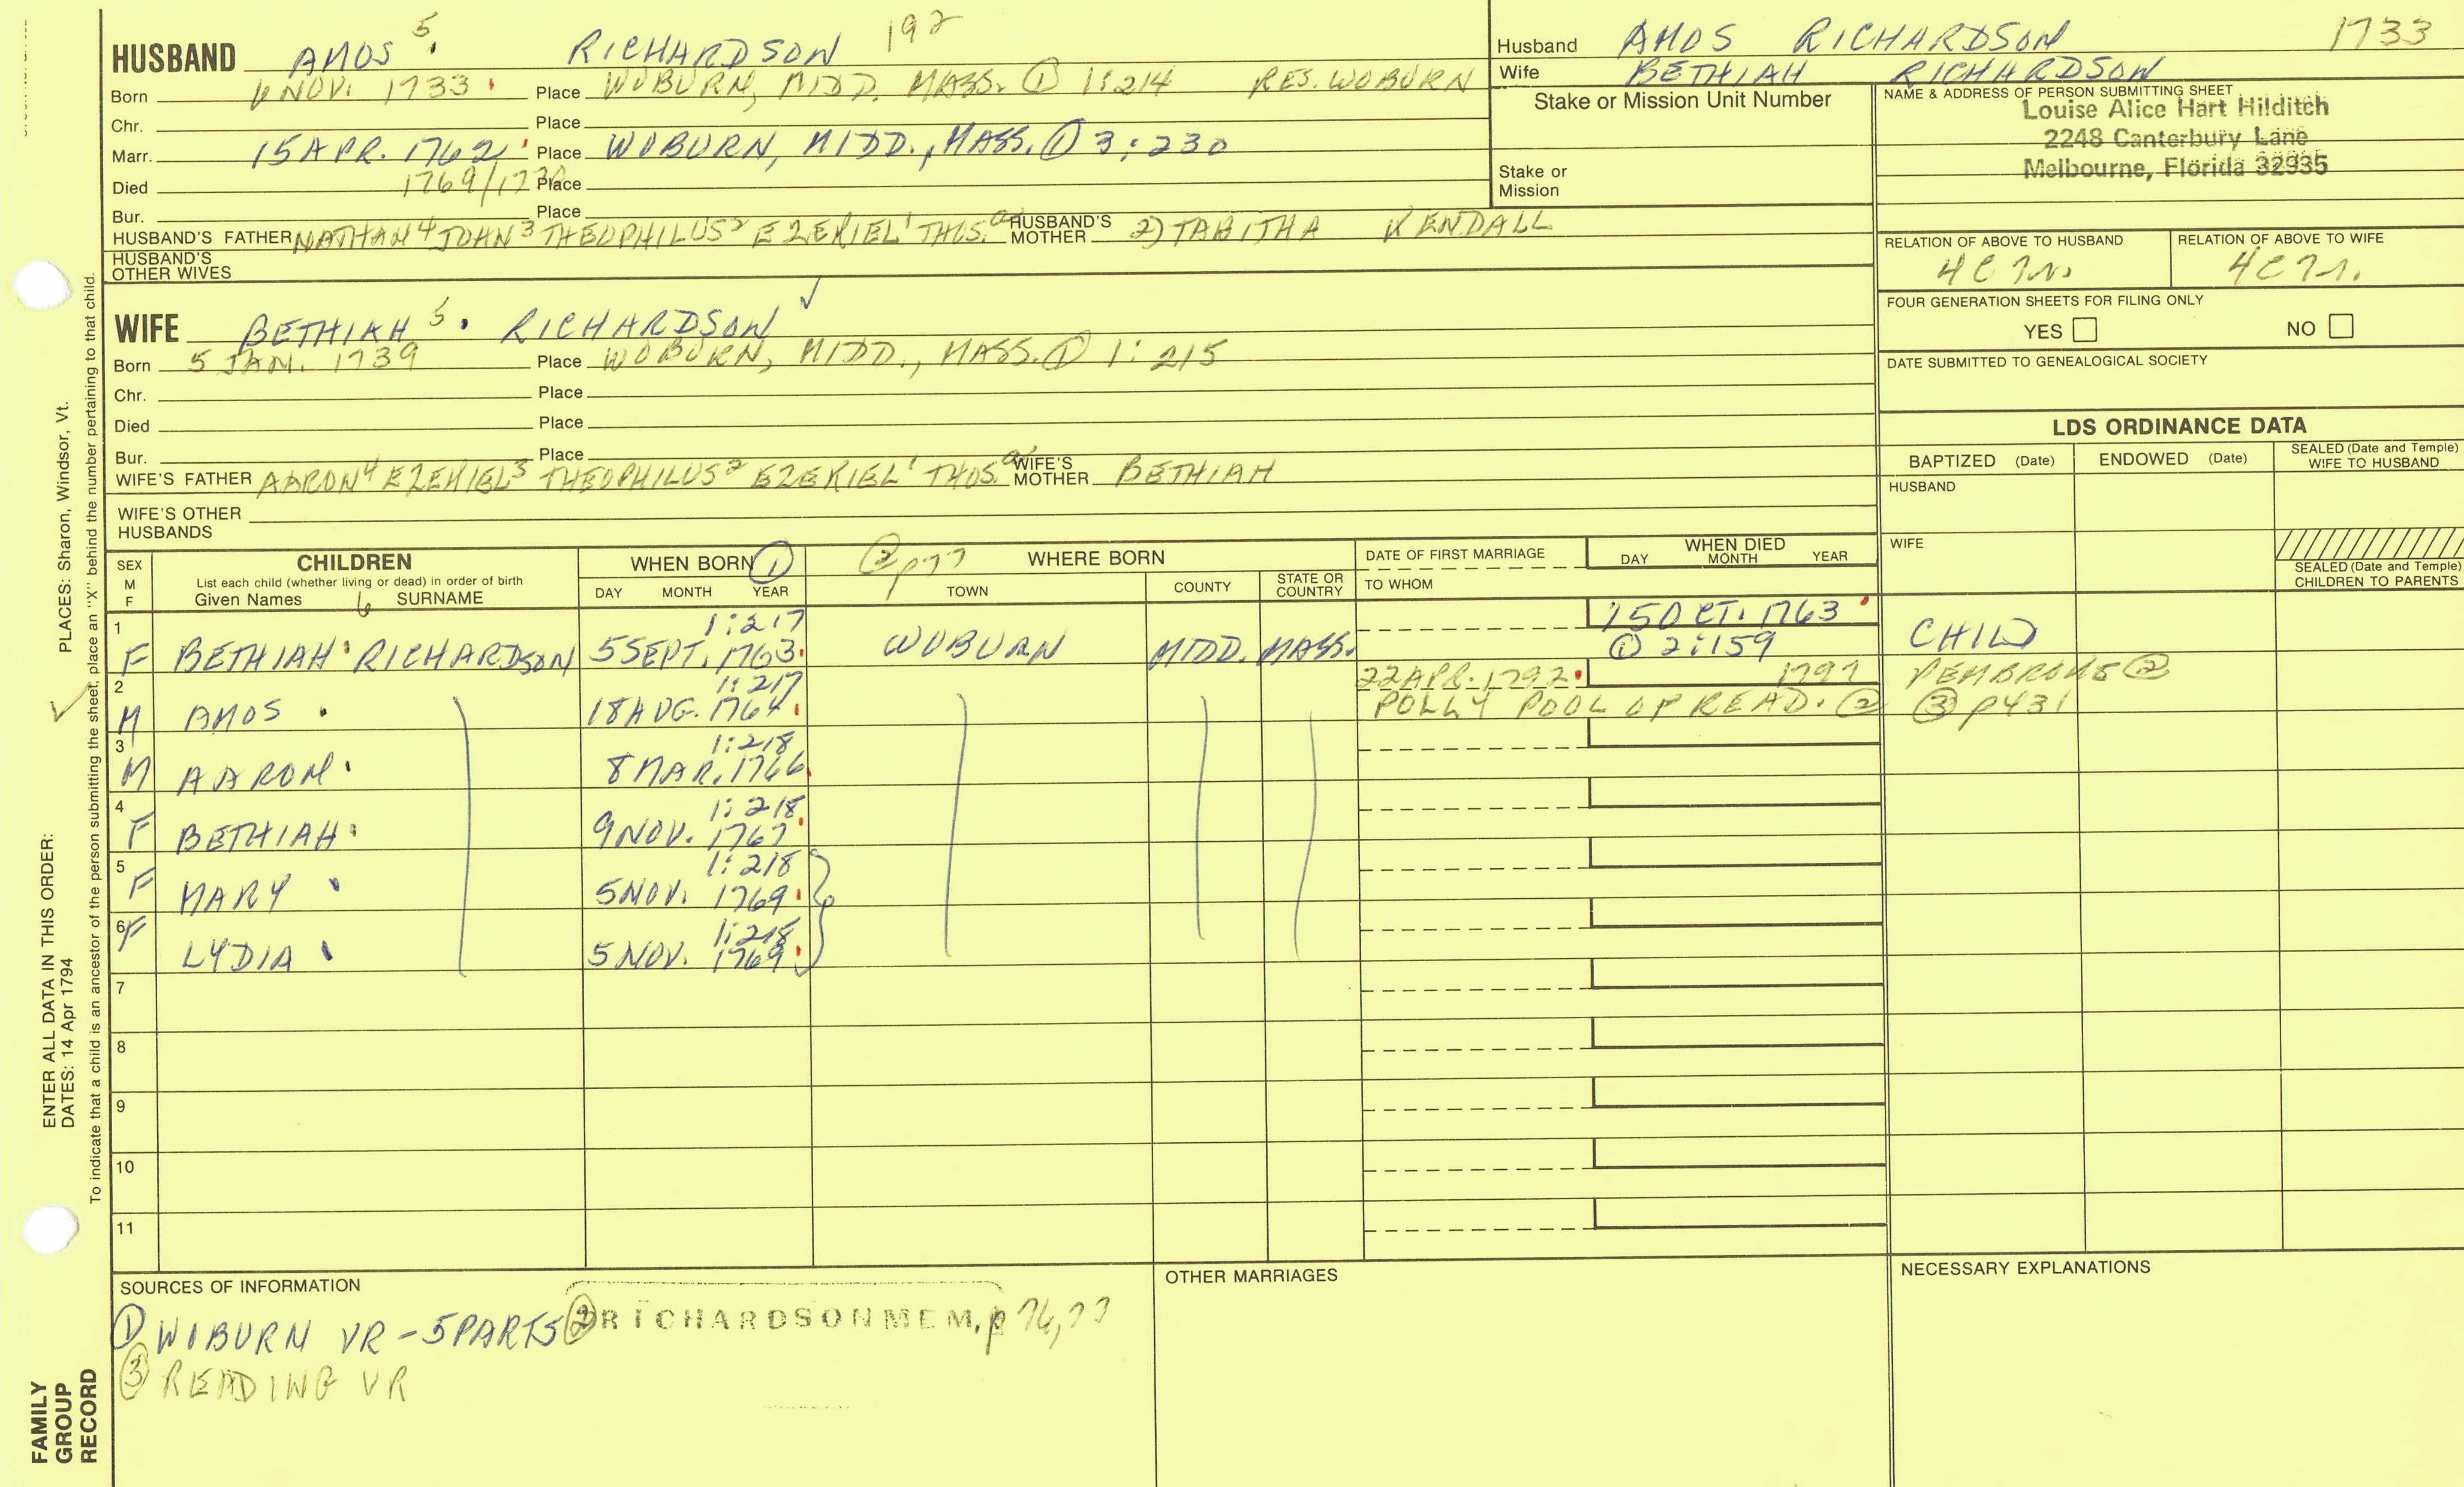 HUSBAND AMOS 5. RICHARDSON 192
Born NOV. 1733 Place WOBURN, MIDD. MASS. ① 1:214 RES. WOBURN
Chr. Place
Marr. 15 APR. 1762 Place WOBURN, MIDD., MASS. ① 3:230
Died 1769/ Place
Bur. Place
HUSBAND'S FATHER NATHAN 4 JOHN 3 THEOPHILUS 2 EZEKIEL 1 THOS. a HUSBAND'S MOTHER 2) TABITHA KENDALL
HUSBAND'S OTHER WIVES
Husband AMOS RICHARDSON 1733
Wife BETHIAH RICHARDSON
Stake or Mission Unit Number
Stake or Mission
NAME & ADDRESS OF PERSON SUBMITTING SHEET
Louise Alice Hart Hilditch
2248 Canterbury Lane
Melbourne, Florida 32935
RELATION OF ABOVE TO HUSBAND RELATION OF ABOVE TO WIFE
FOUR GENERATION SHEETS FOR FILING ONLY
YES NO
DATE SUBMITTED TO GENEALOGICAL SOCIETY
WIFE BETHIAH 5. RICHARDSON ✓
Born 5 JAN. 1739 Place WOBURN, MIDD., MASS. ① 1:215
Chr. Place
Died Place
Bur. Place
WIFE'S FATHER AARON 4 EZEKIEL 3 THEOPHILUS 2 EZEKIEL 1 THOS. a WIFE'S MOTHER BETHIAH
WIFE'S OTHER HUSBANDS
LDS ORDINANCE DATA
BAPTIZED (Date) ENDOWED (Date) SEALED (Date and Temple) WIFE TO HUSBAND
HUSBAND
WIFE
SEALED (Date and Temple) CHILDREN TO PARENTS
SEX M F
CHILDREN
List each child (whether living or dead) in order of birth
Given Names 6 SURNAME
WHEN BORN ①
DAY MONTH YEAR
② p77 WHERE BORN
TOWN COUNTY STATE OR COUNTRY
DATE OF FIRST MARRIAGE
TO WHOM
WHEN DIED
DAY MONTH YEAR
1 1:217 15 OCT. 1763
F BETHIAH RICHARDSON 5 SEPT. 1763 WOBURN MIDD. MASS. ① 2:159 CHILD
2 1:217 22 APR. 1792 1797 PEMBROKE ②
M AMOS 18 AUG. 1764 POLLY POOL OF READ. ② ③ p431
3 1:218
M AARON 8 MAR. 1766
4 1:218
F BETHIAH 9 NOV. 1767
5 1:218
F MARY 5 NOV. 1769
6 1:218
F LYDIA 5 NOV. 1769
7
8
9
10
11
SOURCES OF INFORMATION
① WOBURN VR - 5 PARTS ② RICHARDSON MEM, p 76,77
③ READING VR
OTHER MARRIAGES
NECESSARY EXPLANATIONS
ENTER ALL DATA IN THIS ORDER:
DATES: 14 Apr 1794
PLACES: Sharon, Windsor, Vt.
To indicate that a child is an ancestor of the person submitting the sheet, place an "X" behind the number pertaining to that child.
FAMILY
GROUP
RECORD